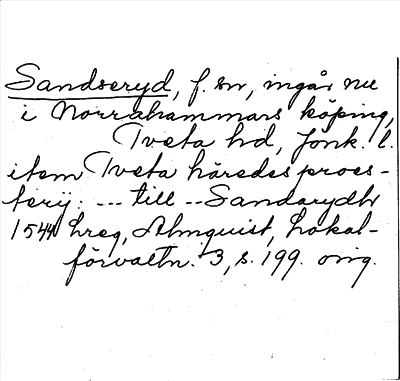 Sandseryd, f. sn, ingår nu
i Norrahammars köping,
Tveta hd, Jönk. l.
item Tveta häredes proes-
terij: --- till -- Sandarydh
1544 hreg, Almquist, Lokal-
förvaltn. 3, s. 199. orig.